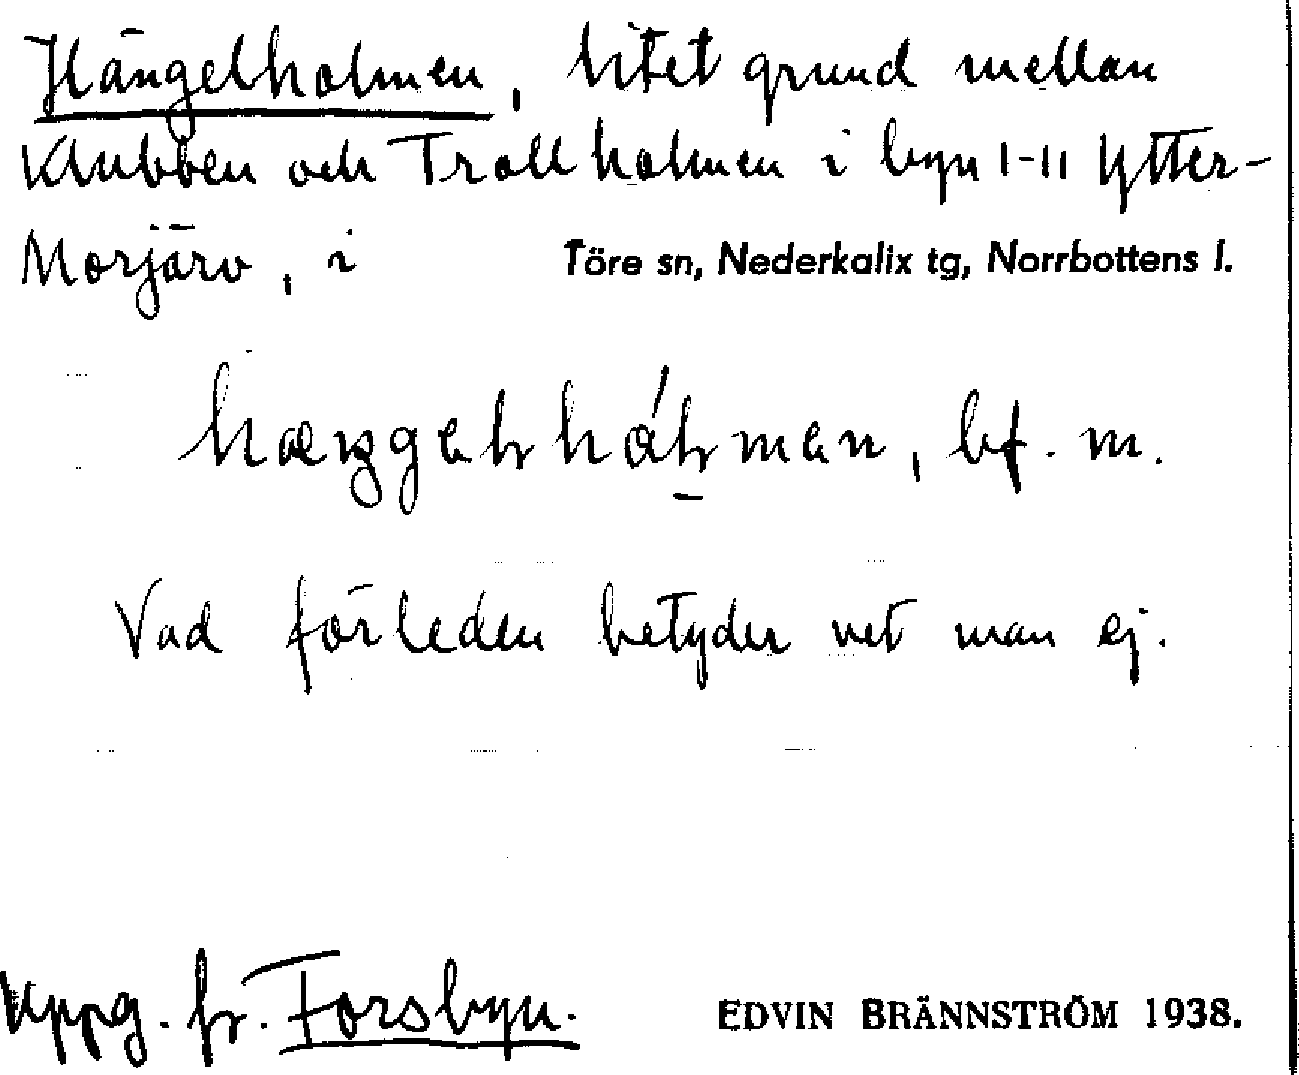 Hängelholmen, litet grund mellan
Klubben och Trollholmen i byn 1-11 Ytter-
Morjärv, i Töre sn, Nederkalix tg, Norrbottens l.
bf. m.
Vad förleden betyder vet man ej.
Uppg. fr. Forsbyn.
EDVIN BRÄNNSTRÖM 1938.